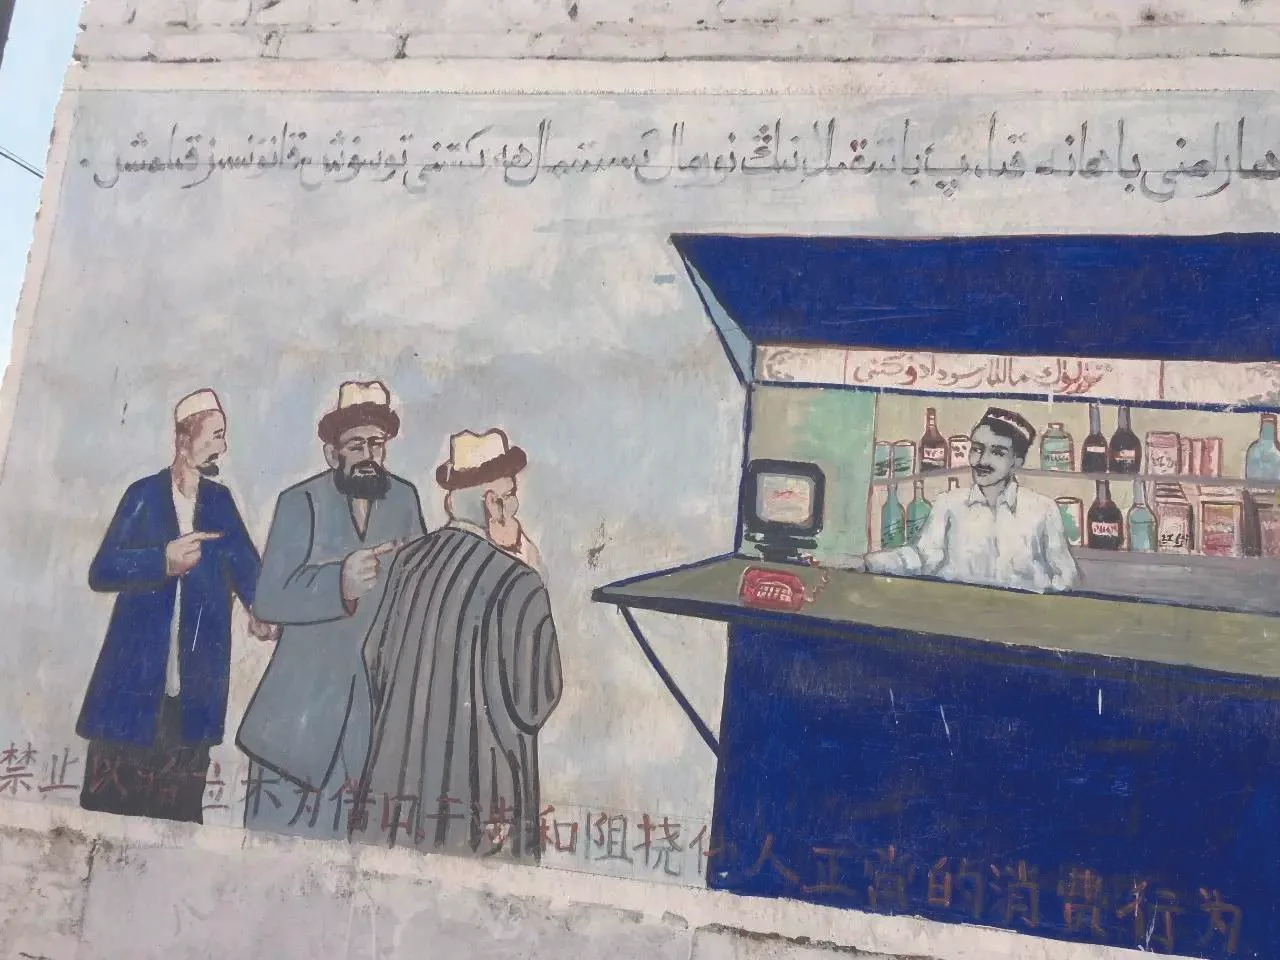 ھارامنى باھانە قىلىپ باشقىلارنىڭ نورمال ئىستىمال ھەرىكىتىنى توسۇش قانۇنسىز قىلمىش.
تۈرلۈك ماللار سودا دۇكىنى
禁止以哈拉木为借口干涉和阻挠他人正常的消费行为